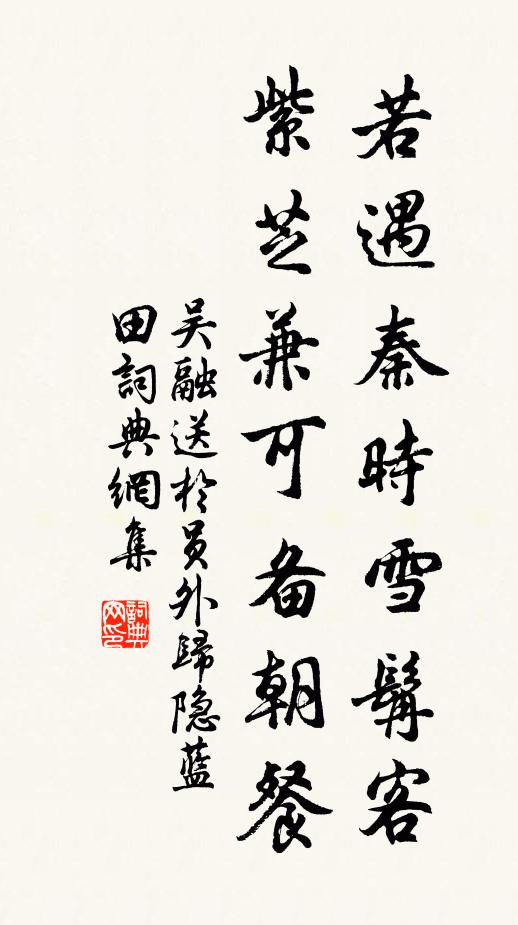 若遇秦時雪鬢客
紫芝兼可备朝餐
吴融送於員外歸隐蓝
田詞典網集
詞典网印